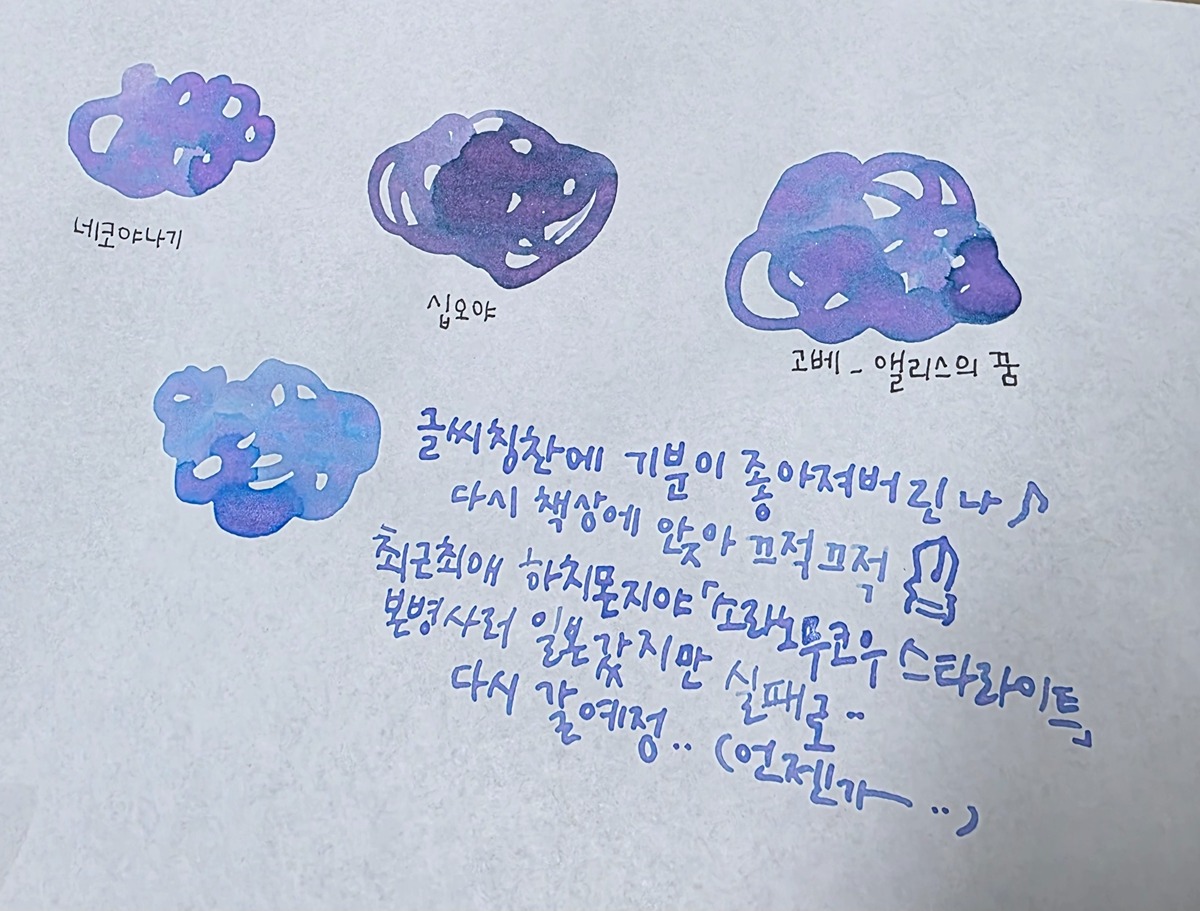 네코야나기
십오야
고베 - 앨리스의 꿈
글씨칭찬에 기분이 좋아져버린 나 ♪
다시 책상에 앉아 끄적끄적
최근최애 하치몬지야 「소라노무코우 스타라이트」
본병사러 일본갔지만 실패로..
다시 갈예정.. (언젠가 ..)